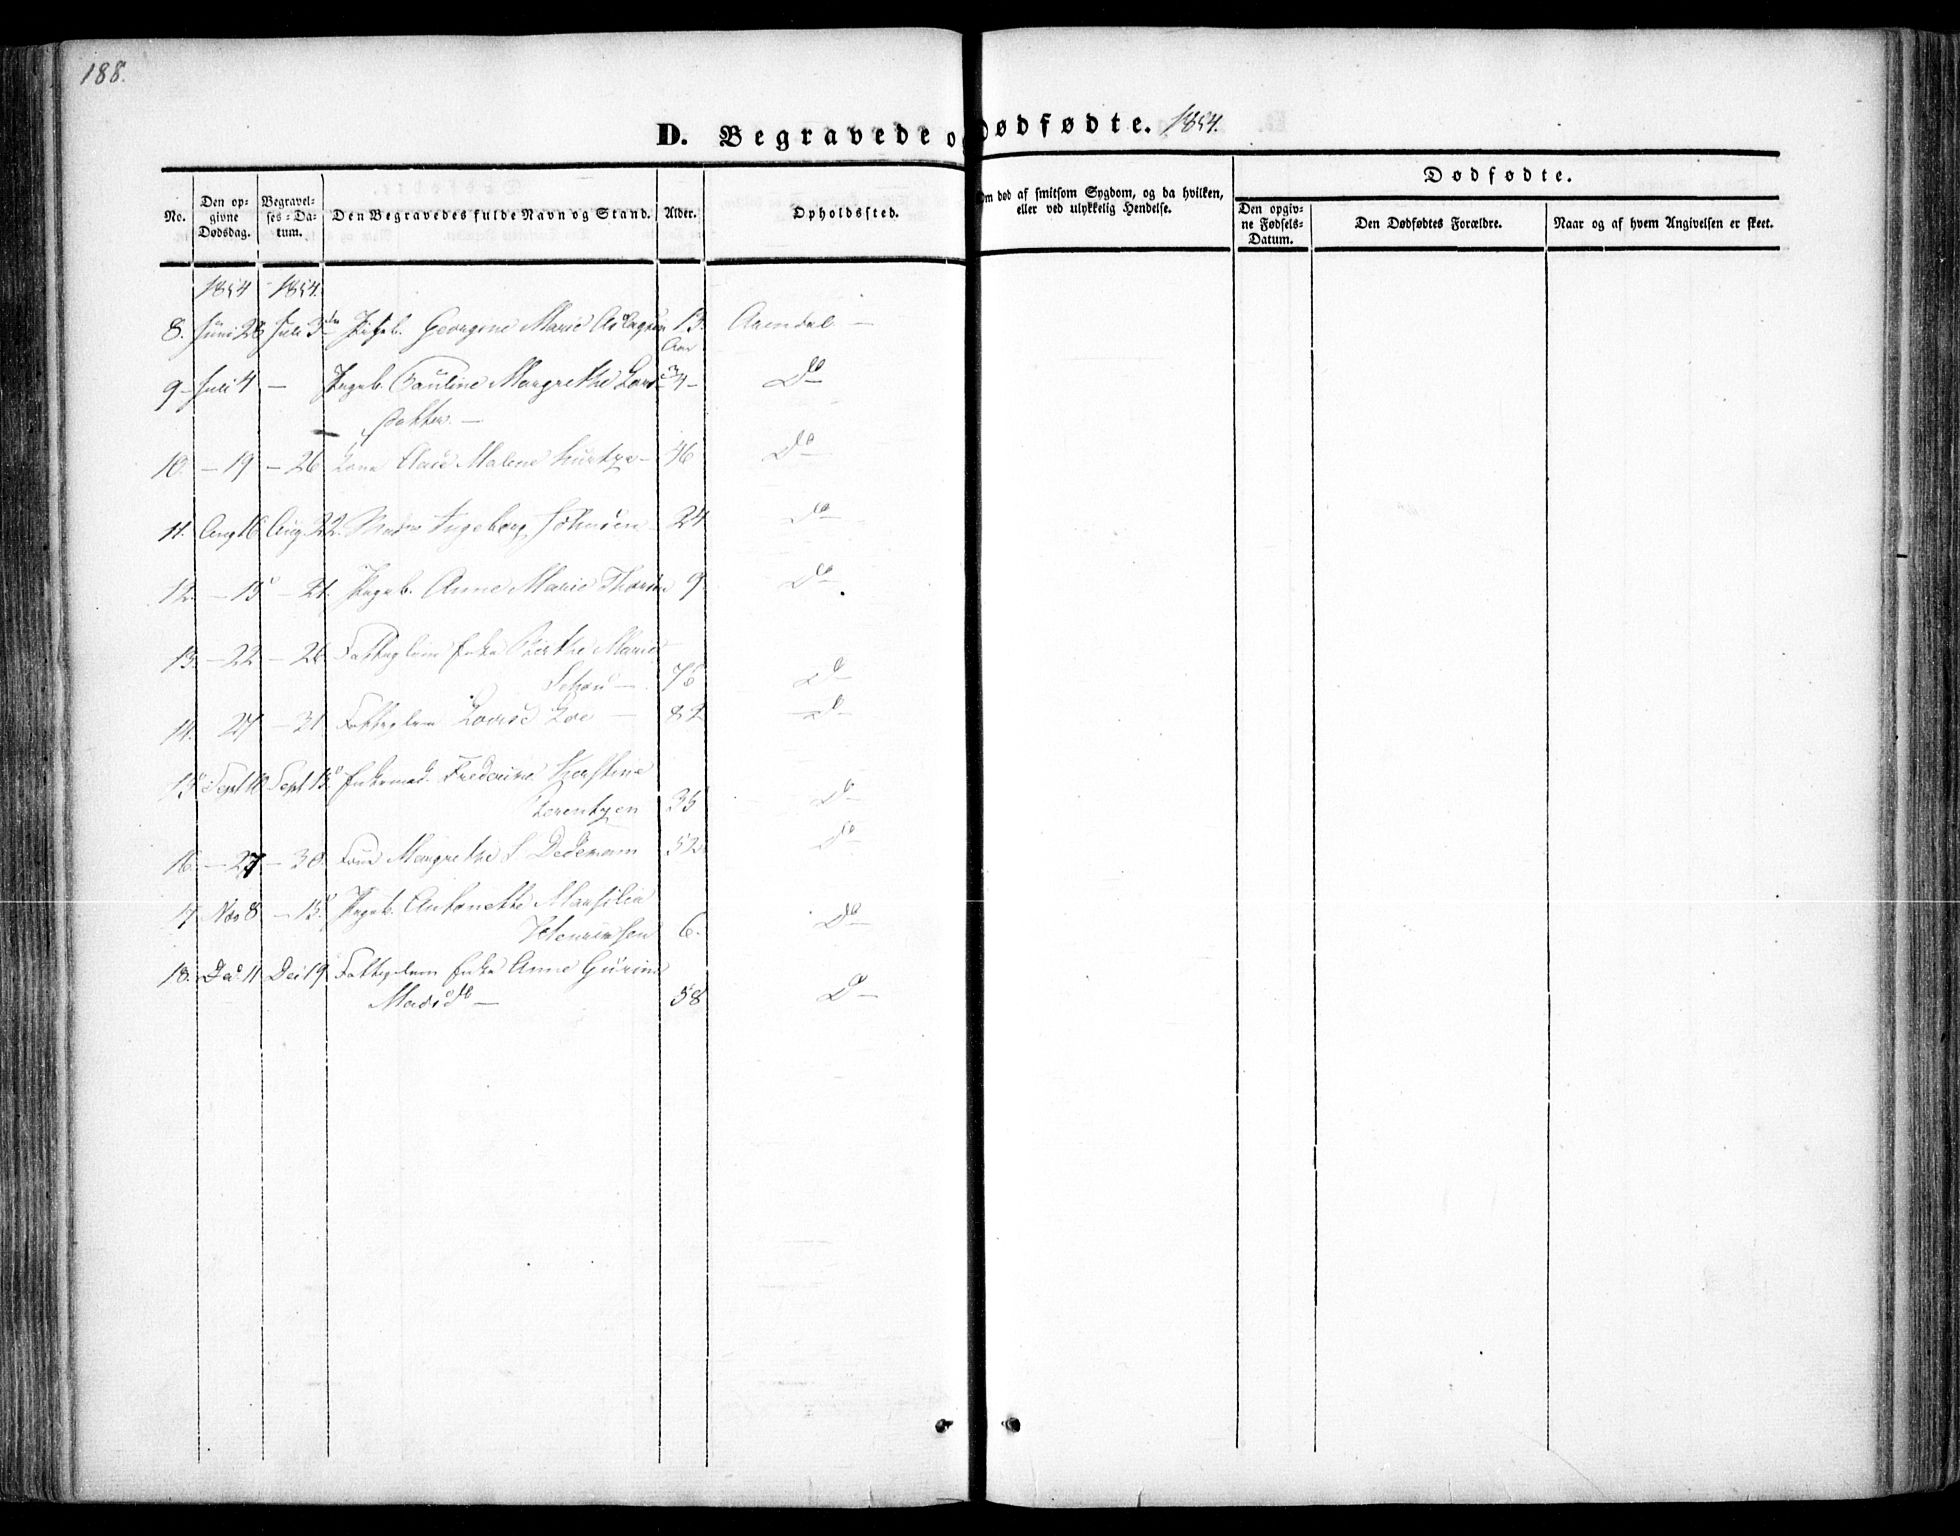 188.
D. Begravede o Dødfødte. 1854.
No.
Den op-
givne
Dødsdag.
Begravel-
ses-Da-
tum.
Den Begravedes fulde Navn og Stand.
Alder.
Opholdssted.
Om død af smitsom Sygdom, og da hvilken,
eller ved ulykkelig Hendelse.
Dødfødte.
Den opgiv-
ne Fødsels-
Datum.
Den Dødfødtes Forældre.
Naar og af hvem Angivelsen er skeet.
1854 1854.
8. Juni 28 Juli 3 Pigeb. Georgine Marie 13. Arendal —
Aar
9 — Juli 4 — Pigeb. Pauline Margrethe Do —
Datter. —
10. — 19 — 26 Malene — 46 Do —
11. Aug 16 Aug 22. Ingeborg Johnsen — 24 Do —
12. — 15 — 21. Pigeb. Anne Marie 9 Do —
13. — 22 — 26. Fatteglem Enke Berthe Marie
— 75 Do
14. 27 — 31. Fatteglem Lovise — 82 Do —
15. Sept 10 Sept 15. Frederikke Kirstine
Lorentzen 35 Do —
16. — 27 — 30. Margrethe S. Dedekam 52 Do —
17. Nov 8. — 15. Pigeb. Antonette
Henriksen 6. Do —
18. Dec. 11 Dec 19. Fatteglem Enke Anne Gurine
— 58 Do —